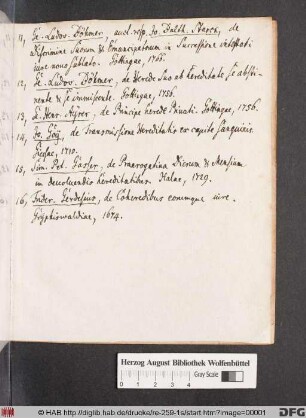 11, Ge. Ludov. Böhmer, auct. resp. Jo. Balth. Storck, de
Discrimine Suorum & Emancipatorum in Successione intestati
iure novo sublato. Gottingae,
12, Ge. Ludov. Böhmer, de Herede Suo ab hereditate se absti-
nente & se immiscente. Gottingae, 1756.
13, G. Henr. Ayrer, de Principe herede Privati. Gottingae, 1756.
14, de Transmissione Hereditatis ex capite Sanguinis.
Giessae, 1710.
15, Sim. Pet. Gasser, de Praerogativa Dierum & Mensium
in devolvendis hereditatibus. Halae, 1729.
16, Frider. Gerdesius, de Coheredibus eorumque iure.
Gryphiswaldiae, 1674.
Herzog August Bibliothek Wolfenbüttel
cm 1 2 3 4
Gray Scale
© HAB http://diglib.hab.de/drucke/re-259-1s/start.htm?image=00001
DFG